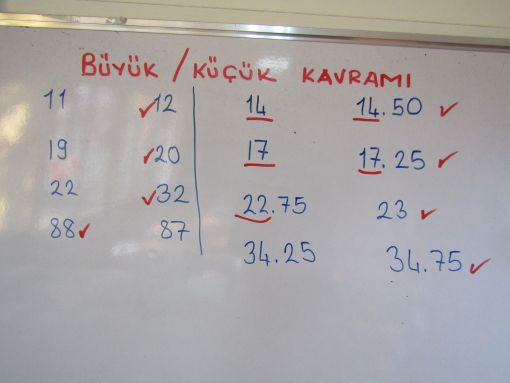 BÜYÜK / KÜÇÜK KAVRAMI
11 ✓12 14 14.50 ✓
19 ✓20 17 17.25 ✓
22 ✓32 22.75 23 ✓
88✓ 87 34.25 34.75 ✓